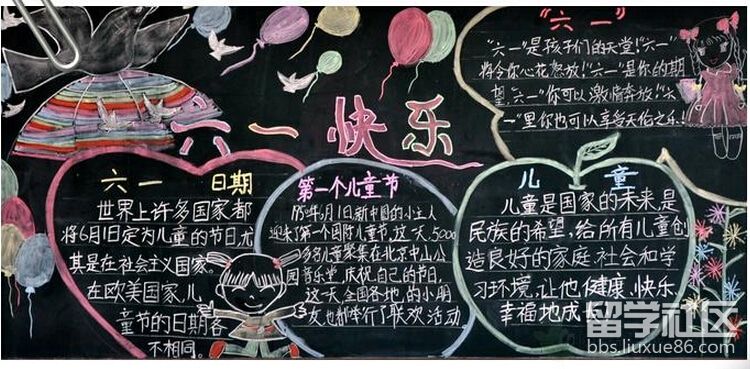 六一快乐
"六一"
"六一"是孩子们的天堂!"六一"
将令你心花怒放!"六一"是你的期
望,"六一"你可以激情奔放!"六
一"里你也可以享受天伦之乐!
六一 日期
世界上许多国家都
将6月1日定为儿童的节日尤
其是在社会主义国家。
在欧美国家,儿
童节的日期各
不相同。
第一个儿童节
1950年6月1日新中国的小主人
迎来了第一个国际儿童节,这一天,5000
多名儿童聚集在北京中山公
园音乐堂,庆祝自己的节日,
这一天,全国各地的小朋
友也都举行了联欢活动
儿童
儿童是国家的未来,是
民族的希望,给所有儿童创
造良好的家庭、社会和学
习环境,让他 健康、快乐、
幸福地成长
留学社区
bbs.liuxue86.com